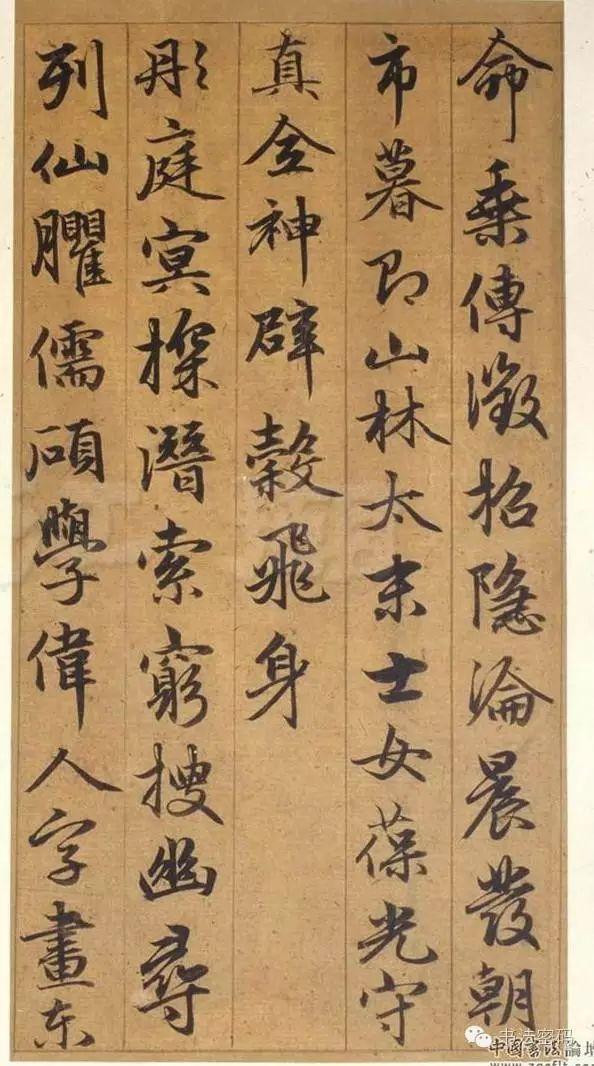 命乘傳徵招隱淪晨發朝
市暮即山林太末士女葆光守
真全神辟穀飛身
彤庭冥探潛索窮搜幽尋
列仙臞儒碩學偉人字畫东
书法密码
中国书法論